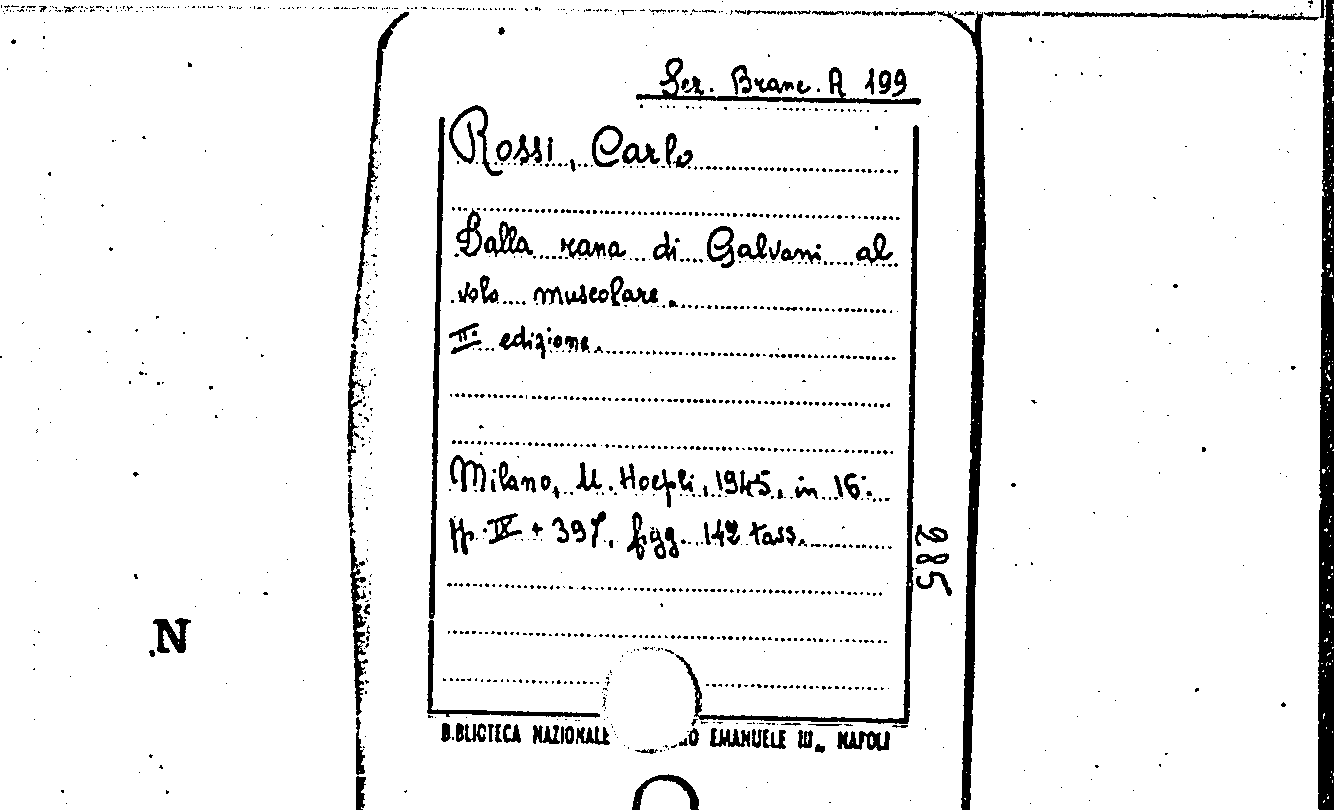 Sez. Branc. A 199
Rossi, Carlo
Dalla rana di Galvani al
volo muscolare.
II. edizione.
Milano, U. Hoepli, 1945, in 16.
pp. IX + 397, figg. 142 tass.
285
N
B.BLIOTECA NAZIONALE EMANUELE III„ NAPOLI